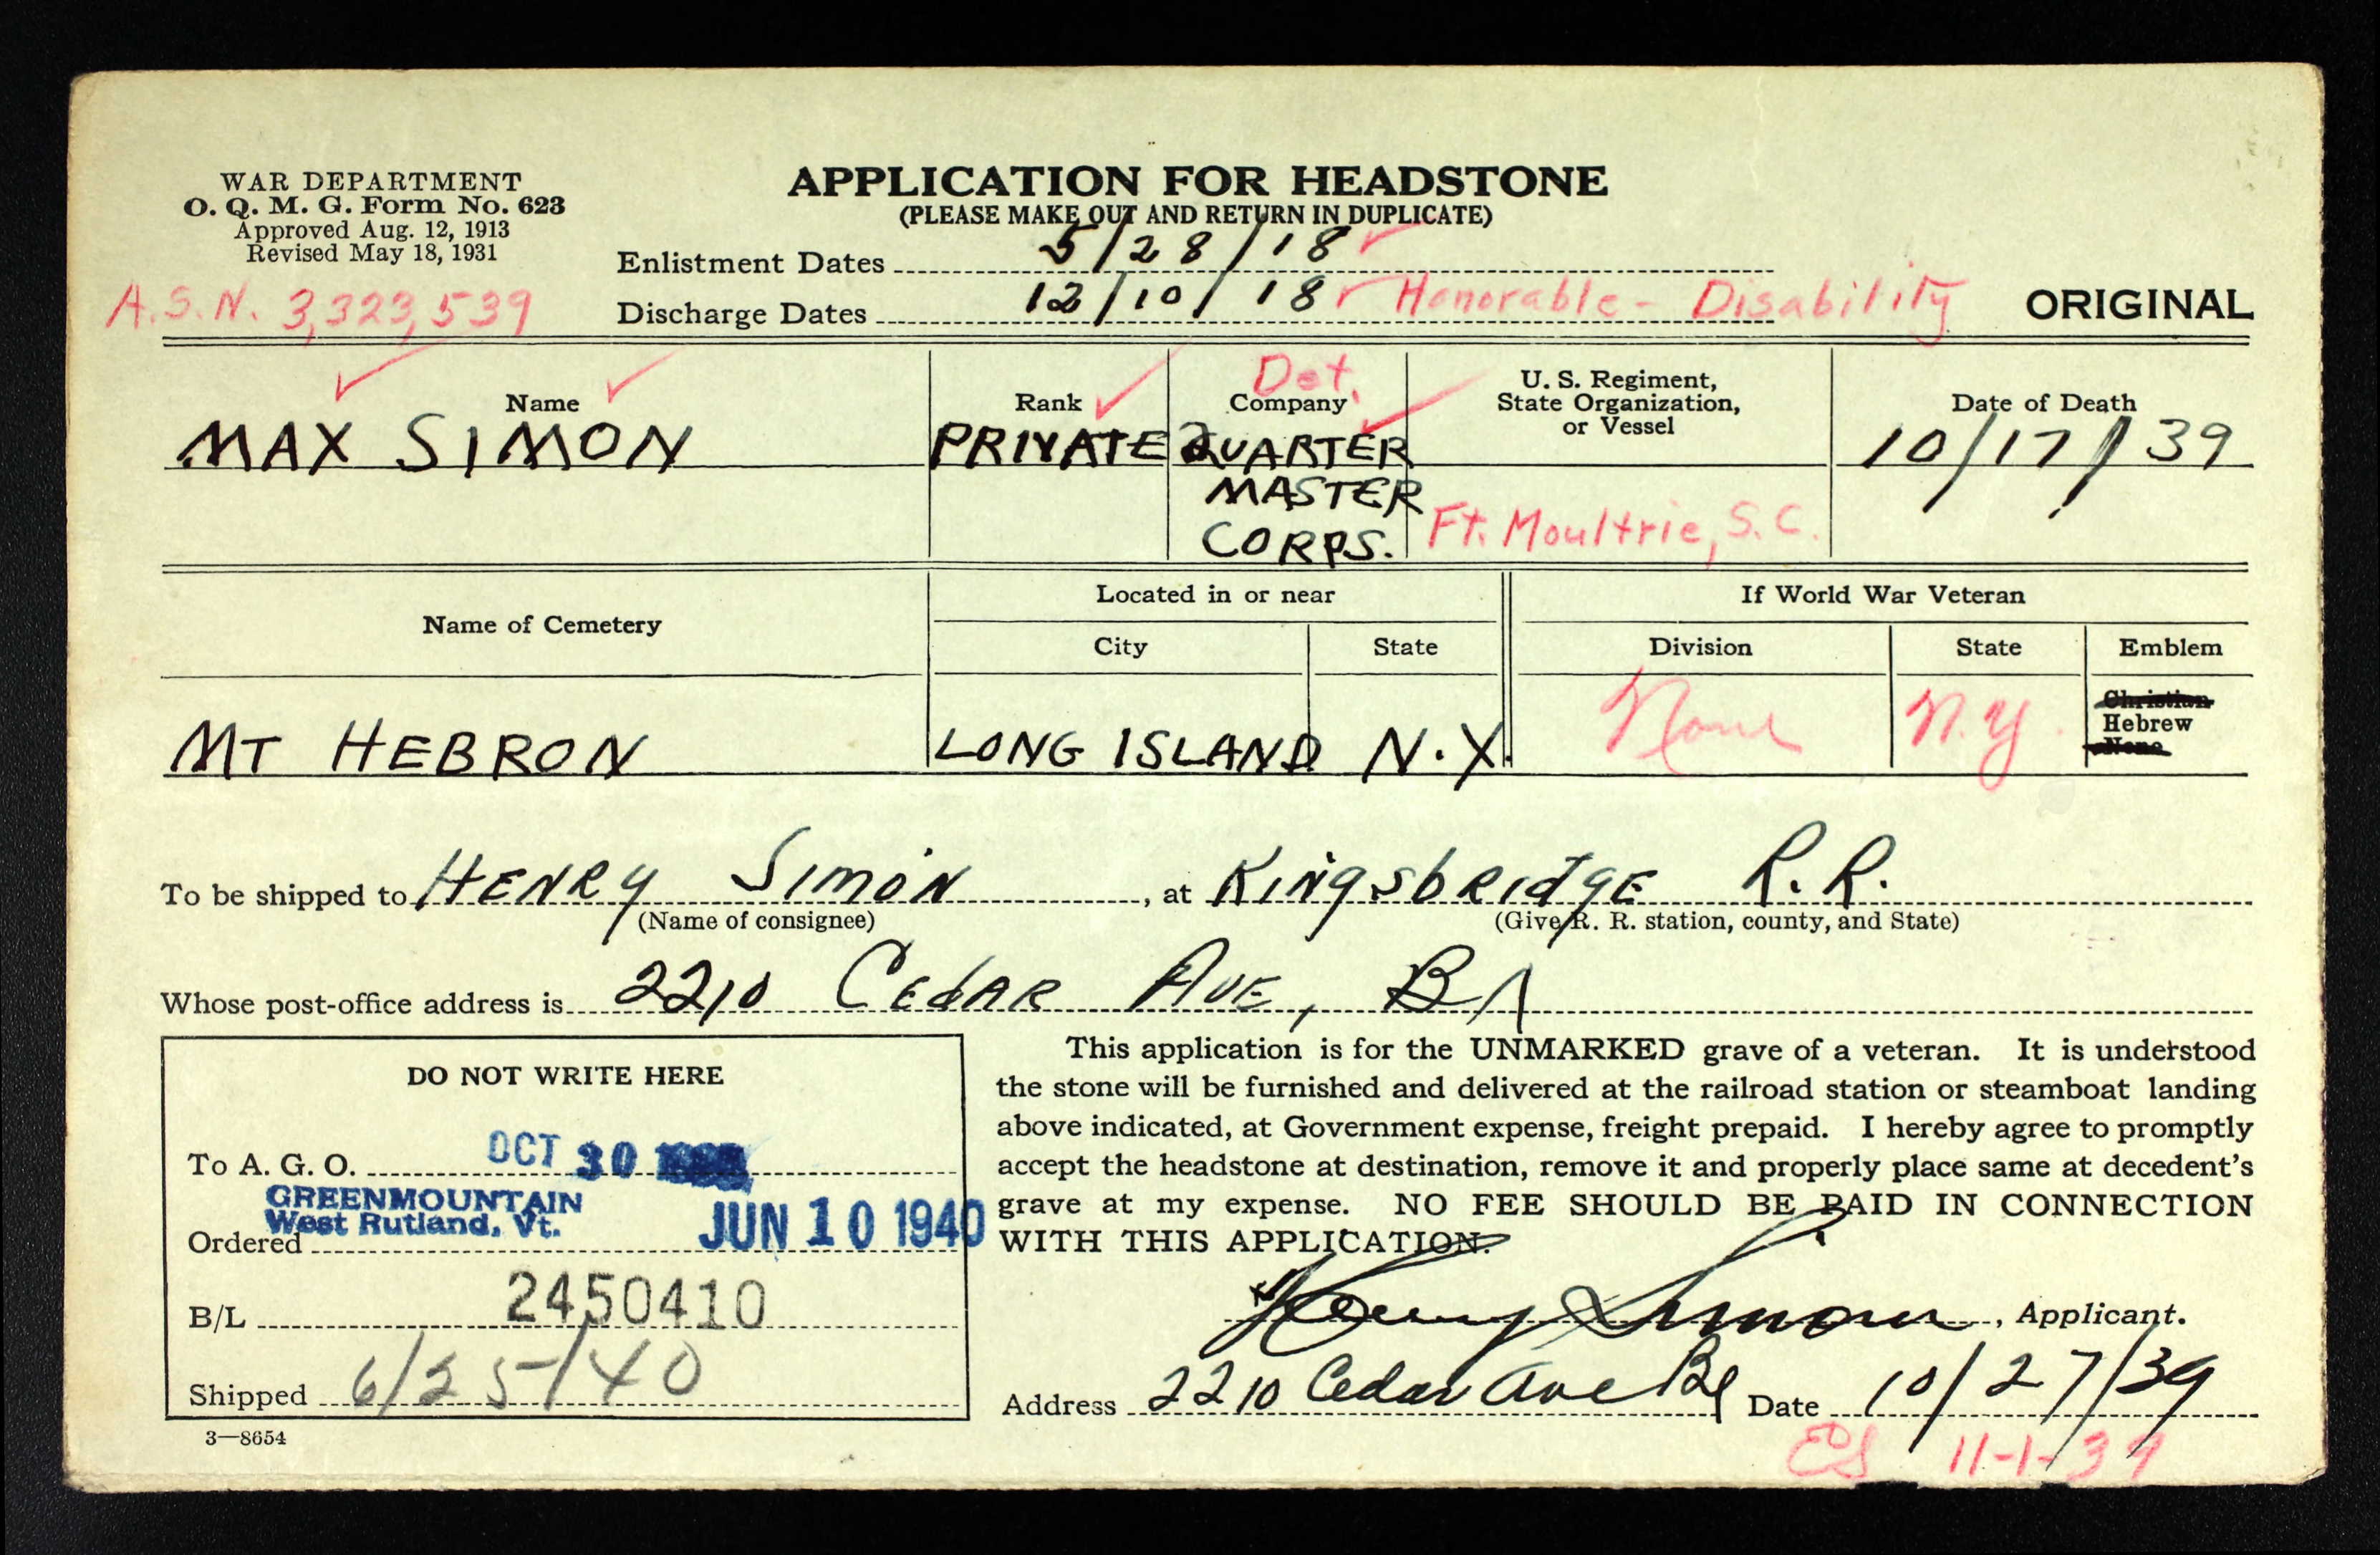 WAR DEPARTMENT
O. Q. M. G. Form No. 623
Approved Aug. 12, 1913
Revised May 18, 1931
A.S.N. 3,323,539
APPLICATION FOR HEADSTONE
(PLEASE MAKE OUT AND RETURN IN DUPLICATE)
Enlistment Dates 5/28/18
Discharge Dates 12/10/18 Honorable - Disability
ORIGINAL
Name
MAX SIMON
Rank
PRIVATE
Det.
Company
QUARTER
MASTER
CORPS.
U. S. Regiment,
State Organization,
or Vessel
Ft. Moultrie, S.C.
Date of Death
10/17/39
Name of Cemetery
MT HEBRON
Located in or near
City
LONG ISLAND
State
N.Y.
If World War Veteran
Division
None
State
N.Y.
Emblem
Christian
Hebrew
None
To be shipped to HENRY SIMON, at KINGSBRIDGE R.R.
(Name of consignee) (Give R. R. station, county, and State)
Whose post-office address is 2210 CEDAR AVE,
DO NOT WRITE HERE
To A. G. O. OCT 30
GREENMOUNTAIN
West Rutland, Vt.
Ordered JUN 10 1940
B/L 2450410
Shipped 6/25/40
3—8654
This application is for the UNMARKED grave of a veteran. It is understood
the stone will be furnished and delivered at the railroad station or steamboat landing
above indicated, at Government expense, freight prepaid. I hereby agree to promptly
accept the headstone at destination, remove it and properly place same at decedent's
grave at my expense. NO FEE SHOULD BE PAID IN CONNECTION
WITH THIS APPLICATION.
Henry Simon, Applicant.
Address 2210 Cedar Ave Date 10/27/39
11-1-39